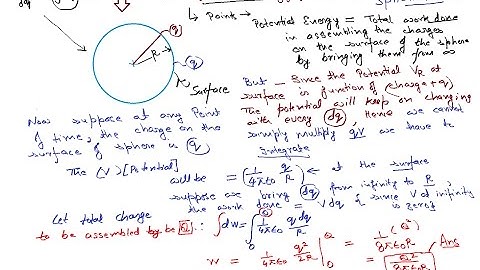 dq
Points →
Potential Energy = Total work done
in assembling the charges
on the surface of the sphere
by bringing them from ∞
(q)
R
(q)
Surface
But — Since the Potential V_R at
surface is function of (charge q)
The potential will keep on changing
with every (dq), Hence we cannot
simply multiply qV we have to
Integrate
Now suppose at any Point
of time, the charge on the
surface of sphere is (q)
The (V) [Potential]
will be = (1/4πε0 q/R) ← at the surface
suppose we bring (dq) from infinity to R,
the work done = Vdq { since V at infinity
is zero }
Let total charge
to be assembled by be Q ∴ ∫dW = ∫₀^Q 1/4πε0 q dq/R
W = 1/4πε0 q²/2R |₀^Q = 1/8πε0 (Q²)/R
= Q²/8πε0R Ans